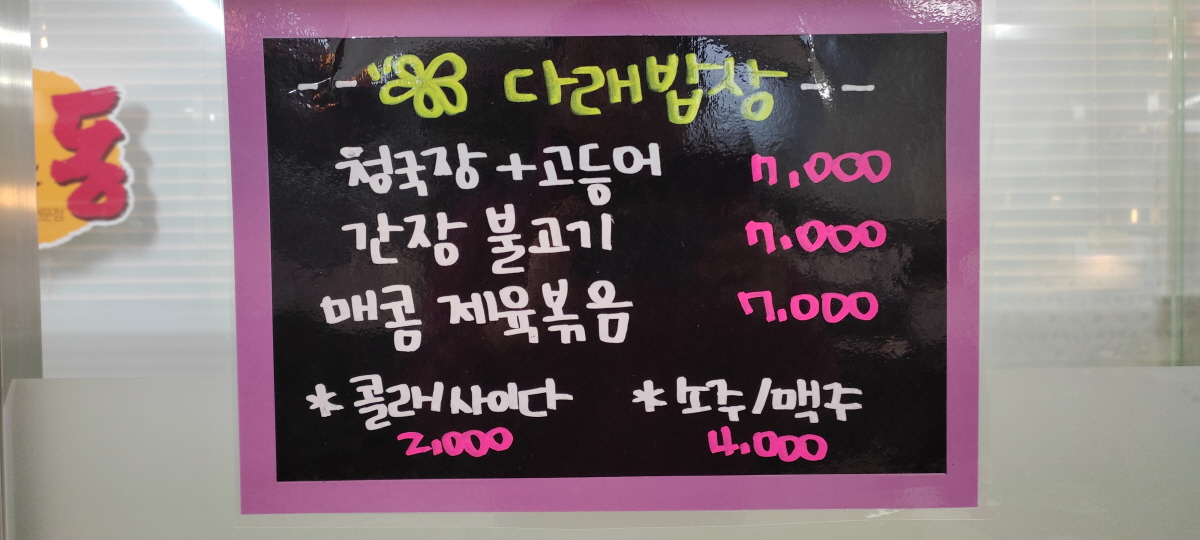 다래밥상
청국장+고등어 7,000
간장 불고기 7.000
매콤 제육볶음 7.000
*콜라/사이다 *소주/맥주
2.000 4.000
동